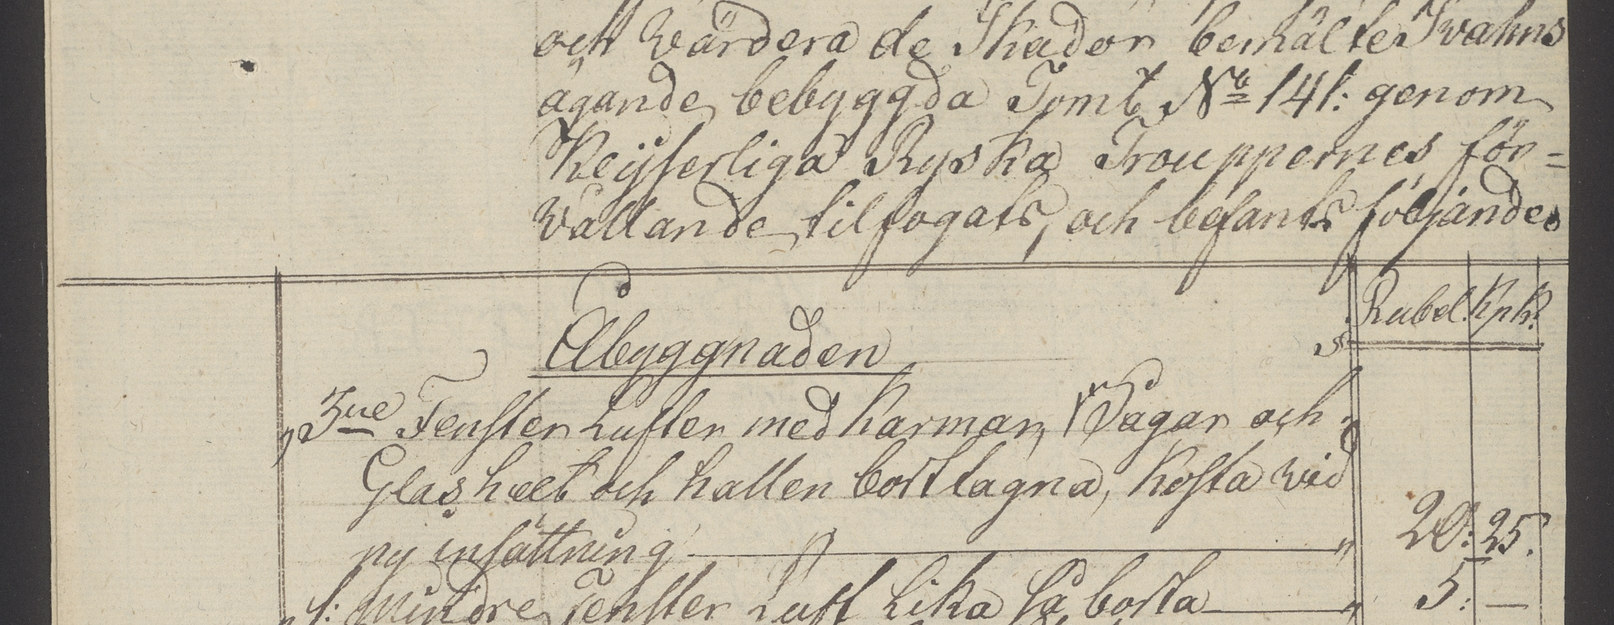 och Wärdera de Skador bemälte Svahns
ägande bebyggda Tomt No 141: genom
Keijserliga Ryska Trouppernes för=
vållande tilfogats, och befants följande
Rubel. Kpk.
Åbyggnaden
3ne Fenster Lufter med Karmar, Bågar och
Glas helt och hållen bortlagna, kosta vid
ny insättning 20: 25.
1: Mindre Fenster Luft lika så borta 5: —